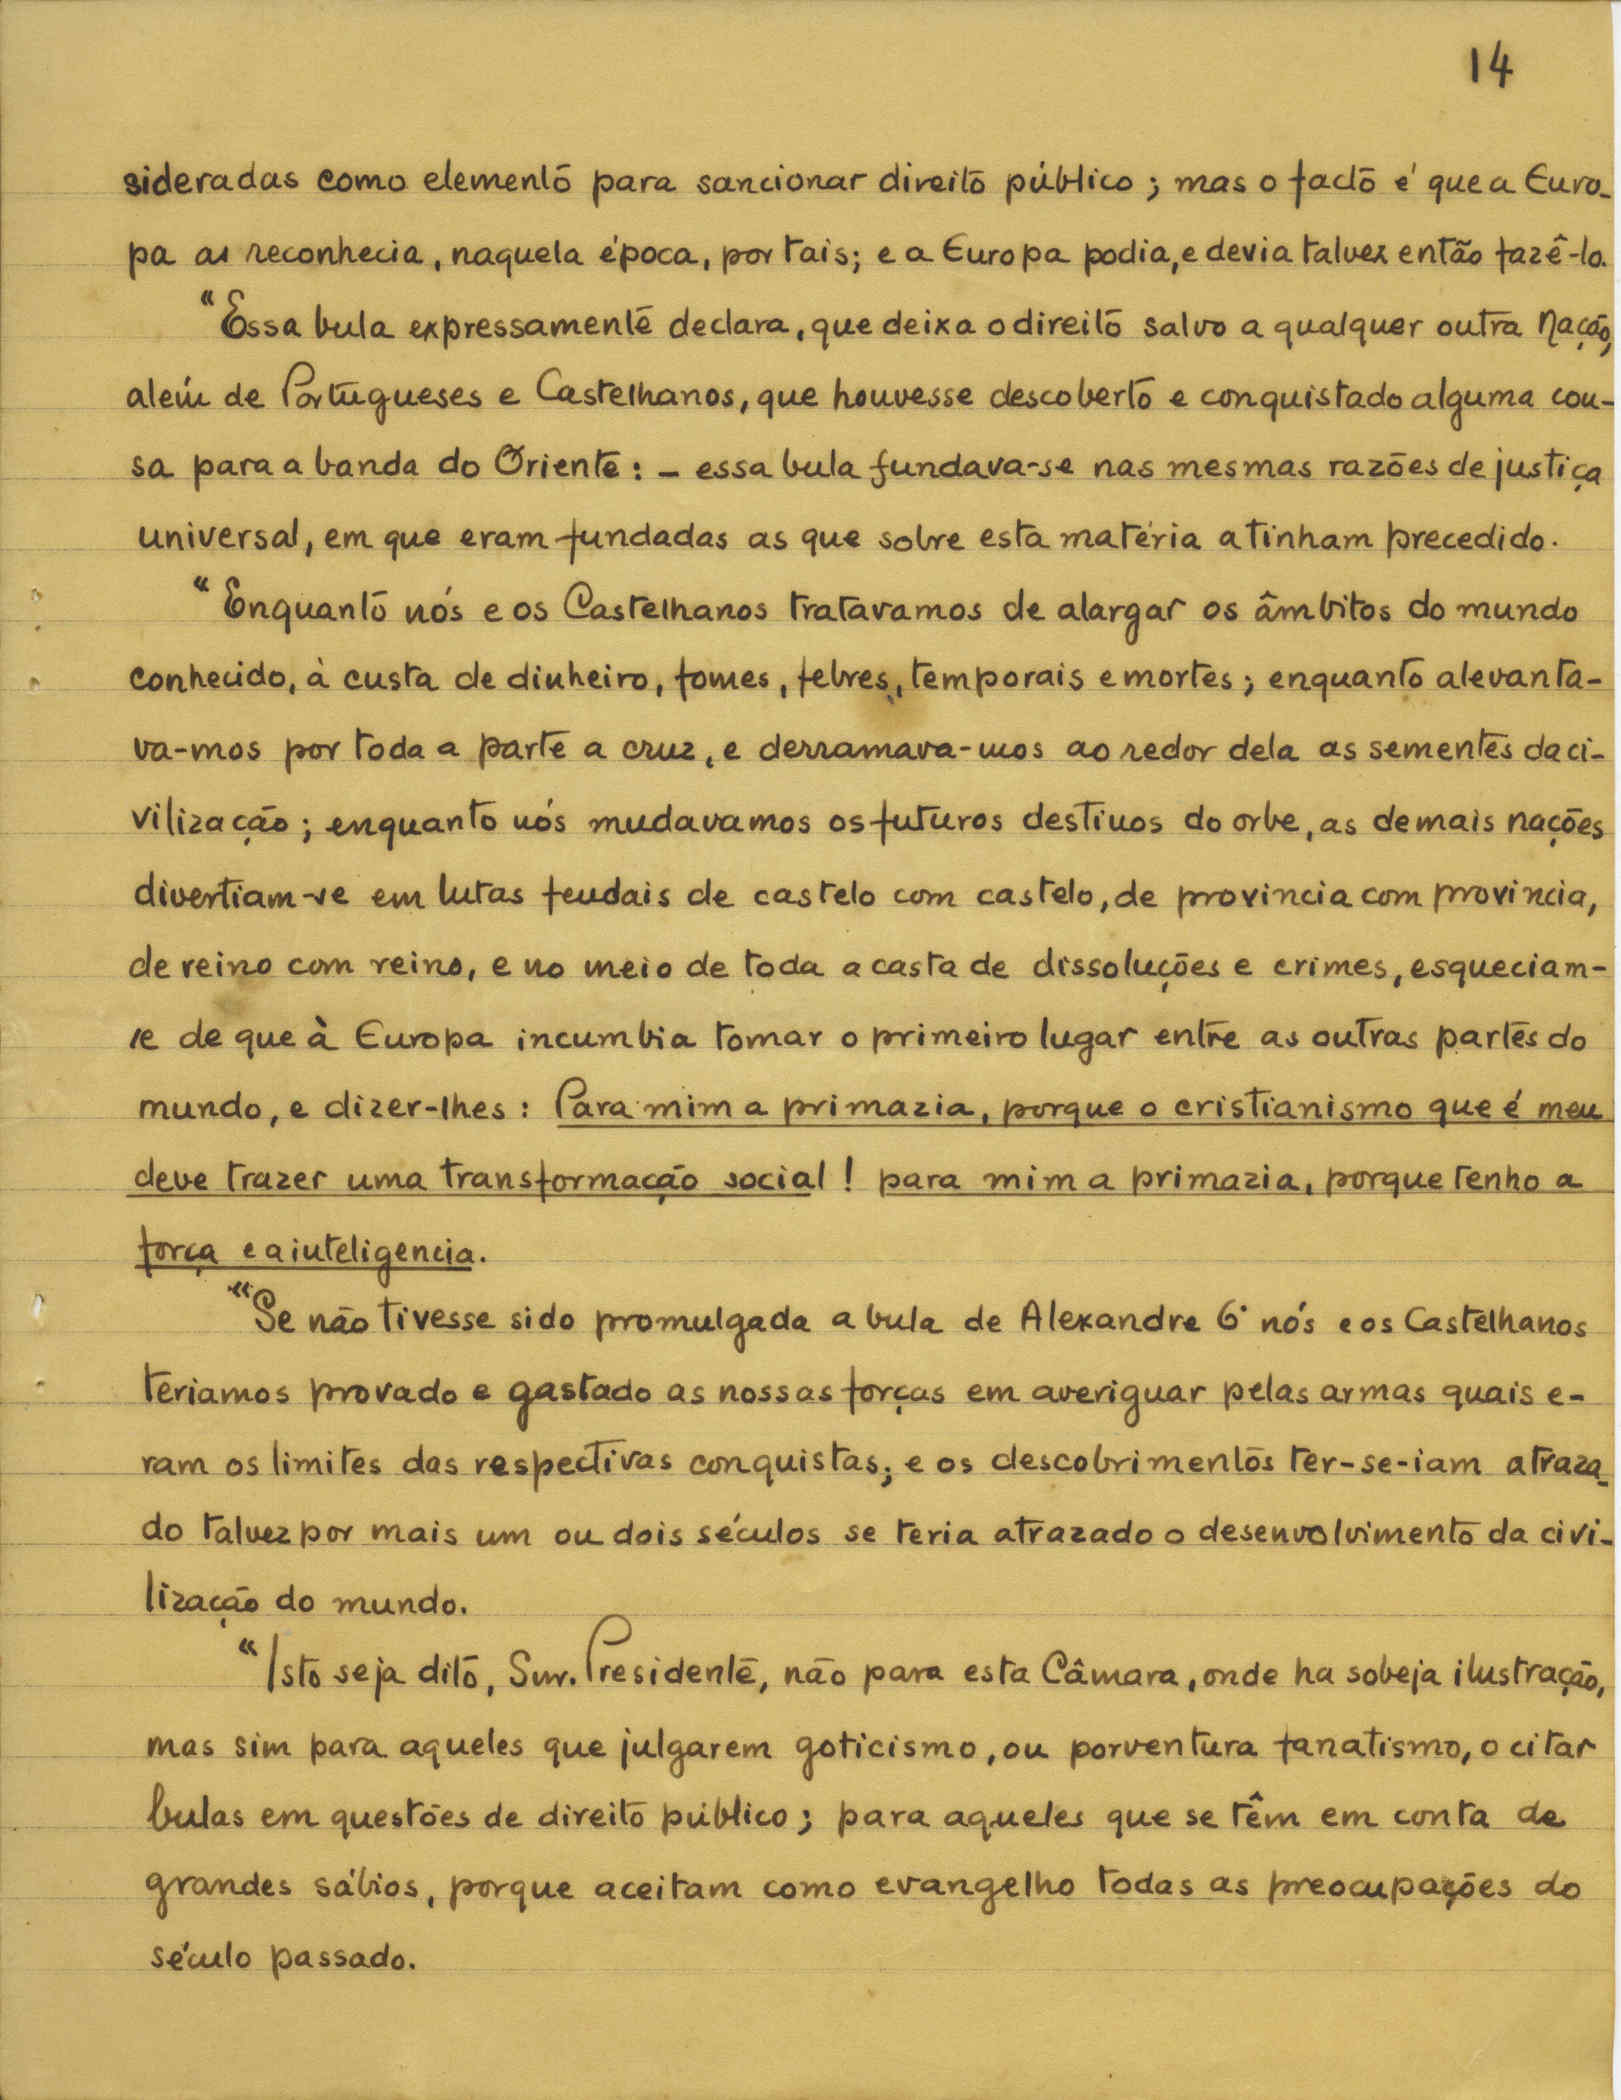 14
sideradas como elemento para sancionar direito público; mas o facto é que a Euro-
pa as reconhecia, naquela época, por tais; e a Europa podia, e devia talvez então fazê-lo.
"Essa bula expressamente declara, que deixa o direito salvo a qualquer outra Nação,
além de Portugueses e Castelhanos, que houvesse descoberto e conquistado alguma cou-
sa para a banda do Oriente: - essa bula fundava-se nas mesmas razões de justiça
universal, em que eram fundadas as que sobre esta matéria a tinham precedido.
"Enquanto nós e os Castelhanos tratavamos de alargar os âmbitos do mundo
conhecido, à custa de dinheiro, fomes, febres, temporais e mortes; enquanto alevanta-
va-mos por toda a parte a cruz, e derramava-mos ao redor dela as sementes da ci-
vilização; enquanto nós mudavamos os futuros destinos do orbe, as demais nações
divertiam-se em lutas feudais de castelo com castelo, de provincia com provincia,
de reino com reino, e no meio de toda a casta de dissoluções e crimes, esqueciam-
se de que à Europa incumbia tomar o primeiro lugar entre as outras partes do
mundo, e dizer-lhes: Para mim a primazia, porque o cristianismo que é meu
deve trazer uma transformação social! para mim a primazia, porque tenho a
força e a inteligencia.
"Se não tivesse sido promulgada a bula de Alexandre 6º nós e os Castelhanos
teriamos provado e gastado as nossas forças em averiguar pelas armas quais e-
ram os limites das respectivas conquistas; e os descobrimentos ter-se-iam atraza-
do talvez por mais um ou dois séculos se teria atrazado o desenvolvimento da civi-
lização do mundo.
"Isto seja dito, Snr. Presidente, não para esta Câmara, onde ha sobeja ilustração,
mas sim para aqueles que julgarem goticismo, ou porventura fanatismo, o citar
bulas em questões de direito público; para aqueles que se têm em conta de
grandes sábios, porque aceitam como evangelho todas as preocupações do
século passado.